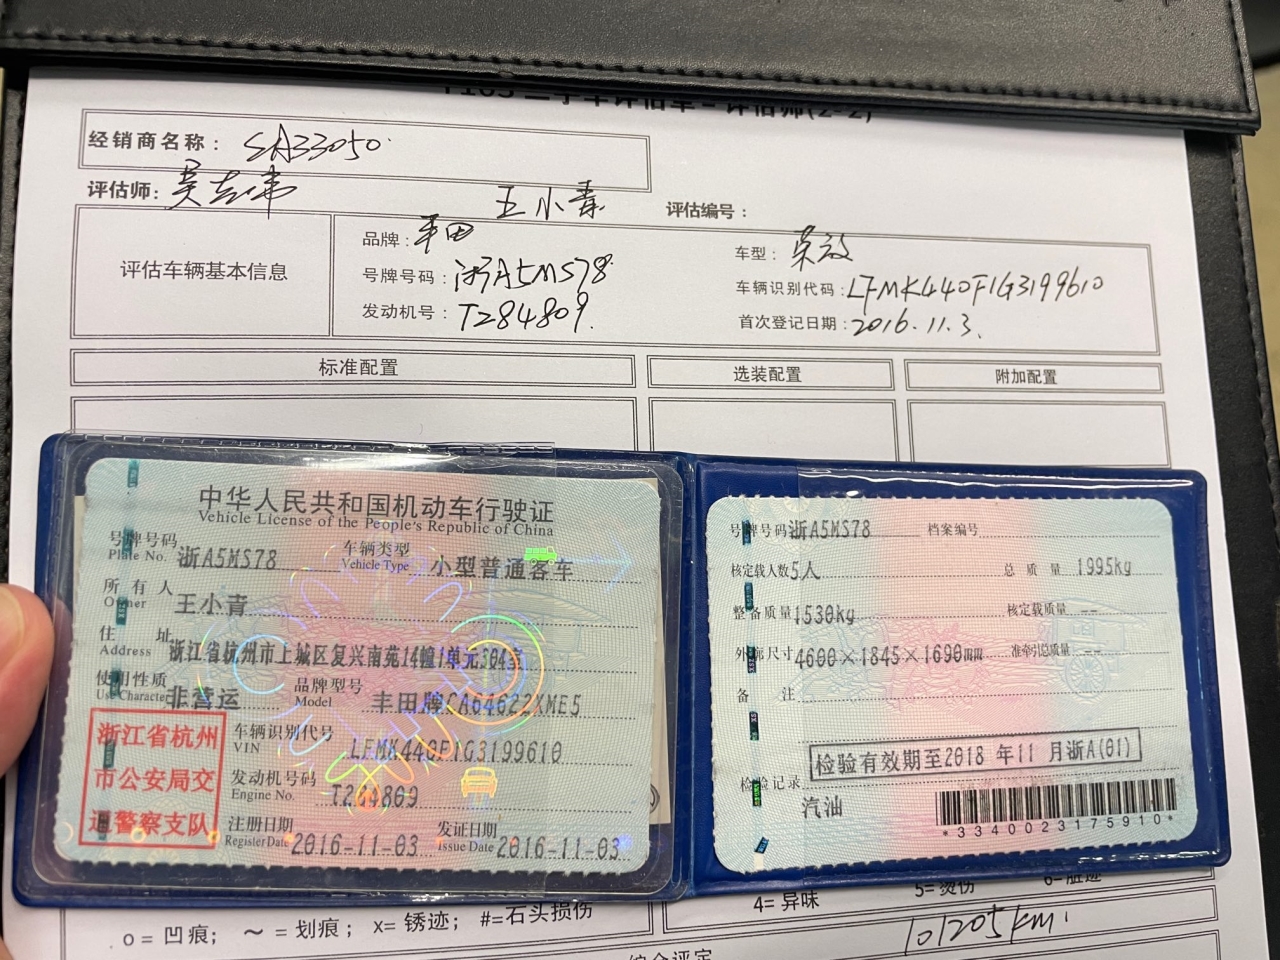 二手车评估单 - 评估师(2-2)
经销商名称： SA33050
评估师: 吴志伟 王小青 评估编号：
评估车辆基本信息
品牌：丰田 车型：荣放
号牌号码：浙A5MS78 车辆识别代码：LFMK440F1G3199610
发动机号：T284809. 首次登记日期：2016.11.3.
标准配置 选装配置 附加配置
中华人民共和国机动车行驶证
Vehicle License of the People's Republic of China
号牌号码 浙A5MS78 车辆类型 小型普通客车
Plate No. Vehicle Type
所有人 王小青
Owner
住址 浙江省杭州市上城区复兴南苑14幢1单元304室
Address
使用性质 非营运 品牌型号 丰田牌CA64622XME5
Use Character Model
浙江省杭州
市公安局交
通警察支队
车辆识别代号 LFMK440F1G3199610
VIN
发动机号码 T284809
Engine No.
注册日期 2016-11-03 发证日期 2016-11-03
Register Date Issue Date
号牌号码 浙A5MS78 档案编号
核定载人数 5人 总质量 1995kg
整备质量 1530kg 核定载质量 --
外廓尺寸 4600×1845×1690mm 准牵引总质量 --
备注
检验有效期至2018 年11 月浙A(01)
检验记录
汽油
*3340023175910*
o= 凹痕； ～ = 划痕； x= 锈迹； #=石头损伤
4= 异味 5= 烫伤 6= 脏迹
101205km
综合评定